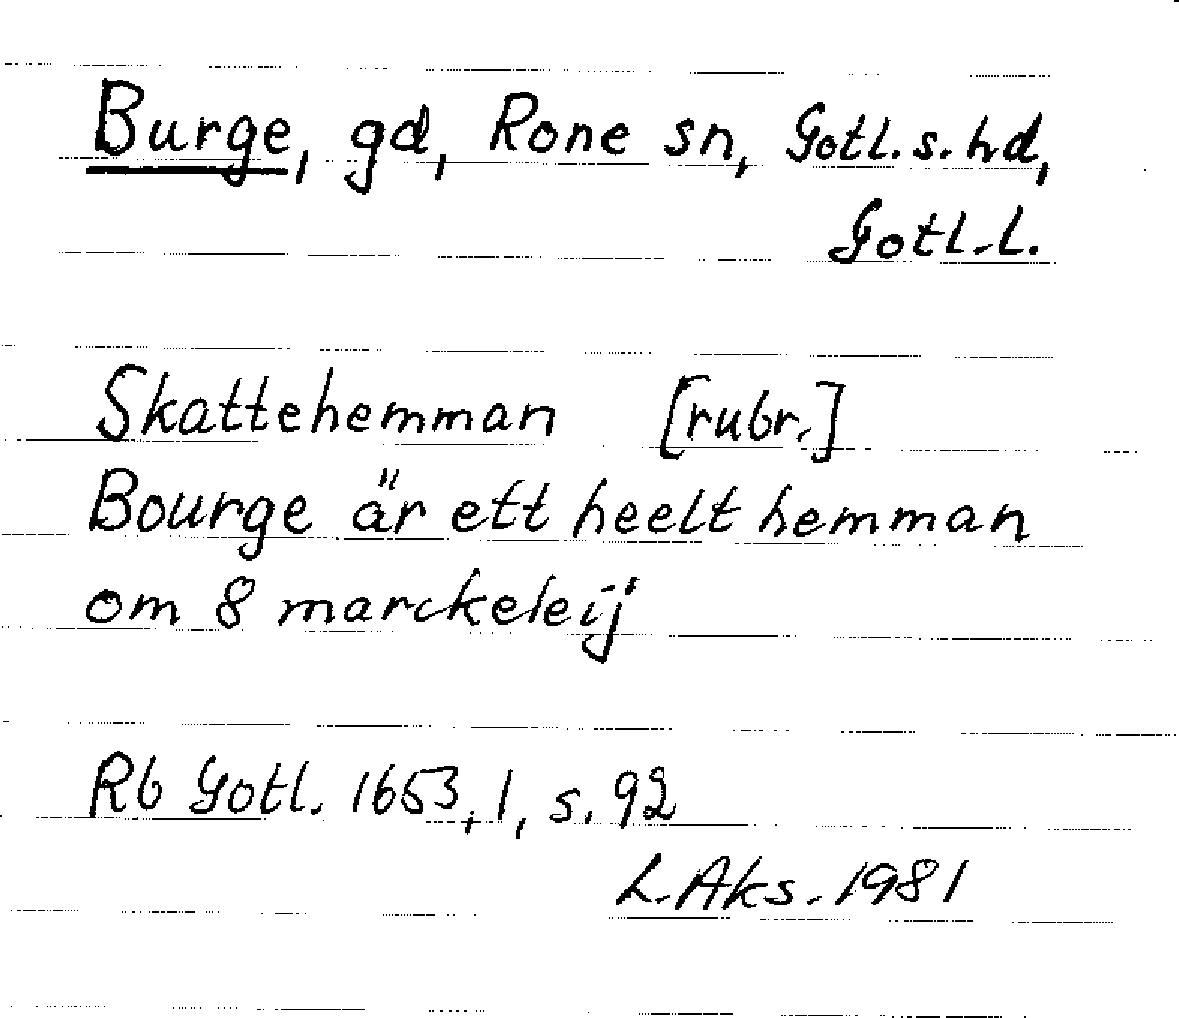 Burge, gd, Rone sn, Gotl. s. hd,
Gotl. l.
Skattehemman [rubr.]
Bourge är ett heelt hemman
om 8 marckeleij
Rb Gotl. 1653, 1, s. 92
L. Aks. 1981